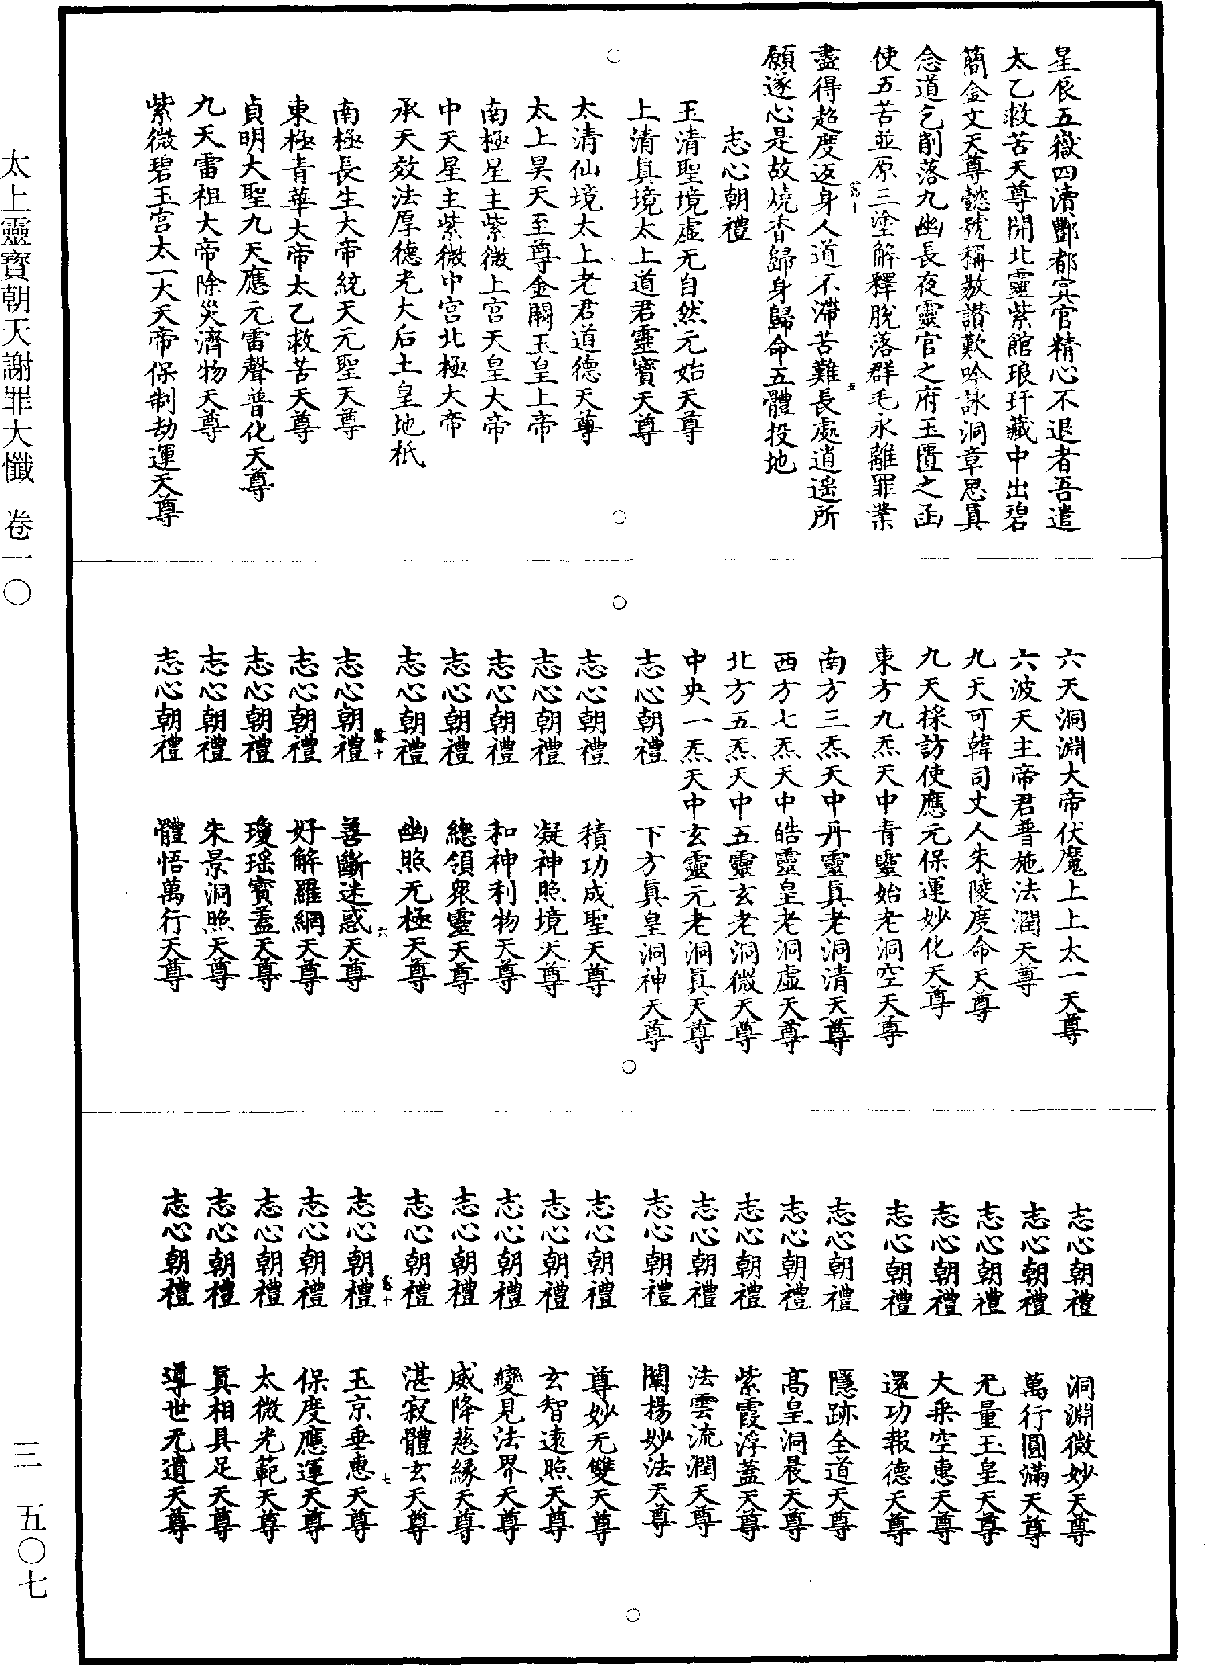 星辰五嶽四瀆酆都冥官精心不退者吾遣
太乙救苦天尊開北靈紫館琅玕藏中出碧
簡金文天尊懿號稱敭讚歎吟詠洞章思眞
念道乞削落九幽長夜靈官之府玉匱之函
使五苦並原三塗解釋脫落群毛永離罪業
盡得超度返身人道不滯苦難長處逍遥所
願遂心是故燒香歸身歸命五體投地
志心朝禮
玉清聖境虛无自然元始天尊
上清眞境太上道君靈寶天尊
太清仙境太上老君道德天尊
太上昊天至尊金闕玉皇上帝
南極星主紫微上宮天皇大帝
中天星主紫微中宮北極大帝
承天效法厚德光大后土皇地祇
南極長生大帝統天元聖天尊
東極青華大帝太乙救苦天尊
貞明大聖九天應元雷聲普化天尊
九天雷祖大帝除災濟物天尊
紫微碧玉宮太一大天帝保制劫運天尊
六天洞淵大帝伏魔上上太一天尊
六波天主帝君普施法潤天尊
九天可韓司丈人朱陵度命天尊
九天採訪使應元保運妙化天尊
東方九炁天中青靈始老洞空天尊
南方三炁天中丹靈眞老洞清天尊
西方七炁天中皓靈皇老洞虛天尊
北方五炁天中五靈玄老洞微天尊
中央一炁天中玄靈元老洞眞天尊
志心朝禮　下方眞皇洞神天尊
志心朝禮　積功成聖天尊
志心朝禮　凝神照境天尊
志心朝禮　和神利物天尊
志心朝禮　總領眾靈天尊
志心朝禮　幽照无極天尊
志心朝禮　善斷迷惑天尊
志心朝禮　好解羅網天尊
志心朝禮　瓊瑤寶蓋天尊
志心朝禮　朱景洞照天尊
志心朝禮　體悟萬行天尊
志心朝禮　洞淵微妙天尊
志心朝禮　萬行圓滿天尊
志心朝禮　无量玉皇天尊
志心朝禮　大乘空惠天尊
志心朝禮　還功報德天尊
志心朝禮　隱跡全道天尊
志心朝禮　高皇洞晨天尊
志心朝禮　紫霞浮蓋天尊
志心朝禮　法雲流潤天尊
志心朝禮　闡揚妙法天尊
志心朝禮　尊妙无雙天尊
志心朝禮　玄智遠照天尊
志心朝禮　變見法界天尊
志心朝禮　威降慈緣天尊
志心朝禮　湛寂體玄天尊
志心朝禮　玉京垂惠天尊
志心朝禮　保度應運天尊
志心朝禮　太微光範天尊
志心朝禮　眞相具足天尊
志心朝禮　導世无遺天尊
太上靈寶朝天謝罪大懺　卷一〇
三　五〇七